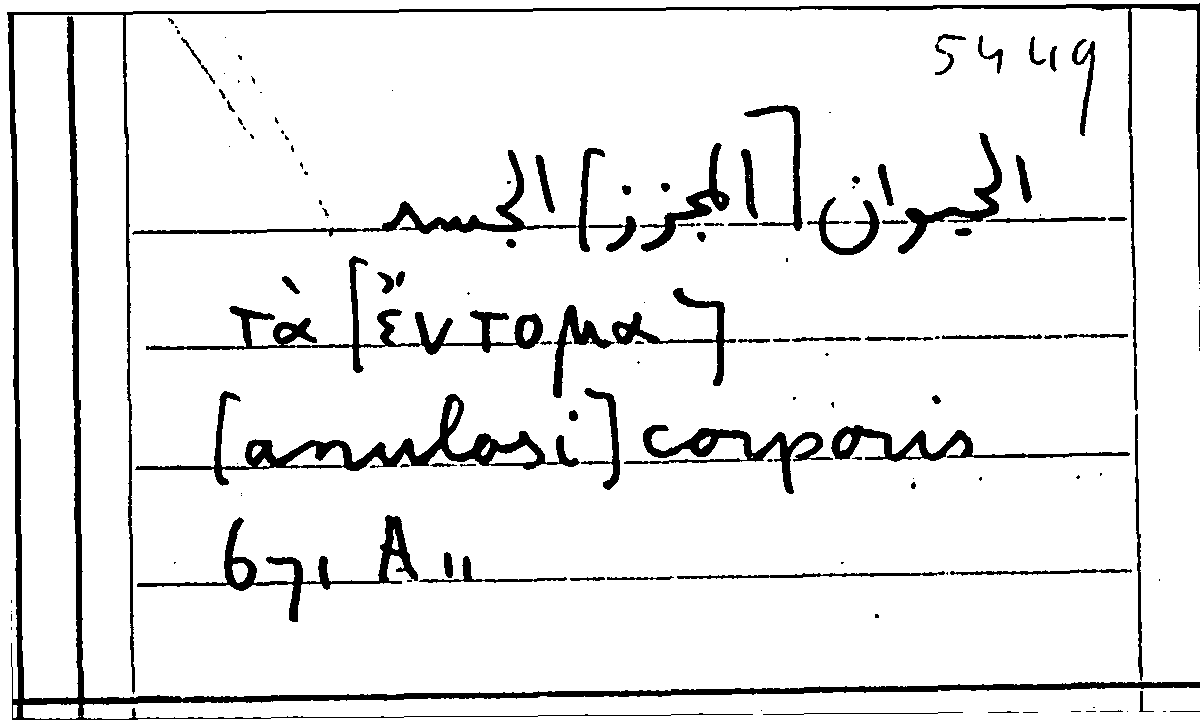 5449
الحيوان [المجزز] الجسد
τὰ [ἔντομα]
[anulosi] corporis
671 A 11